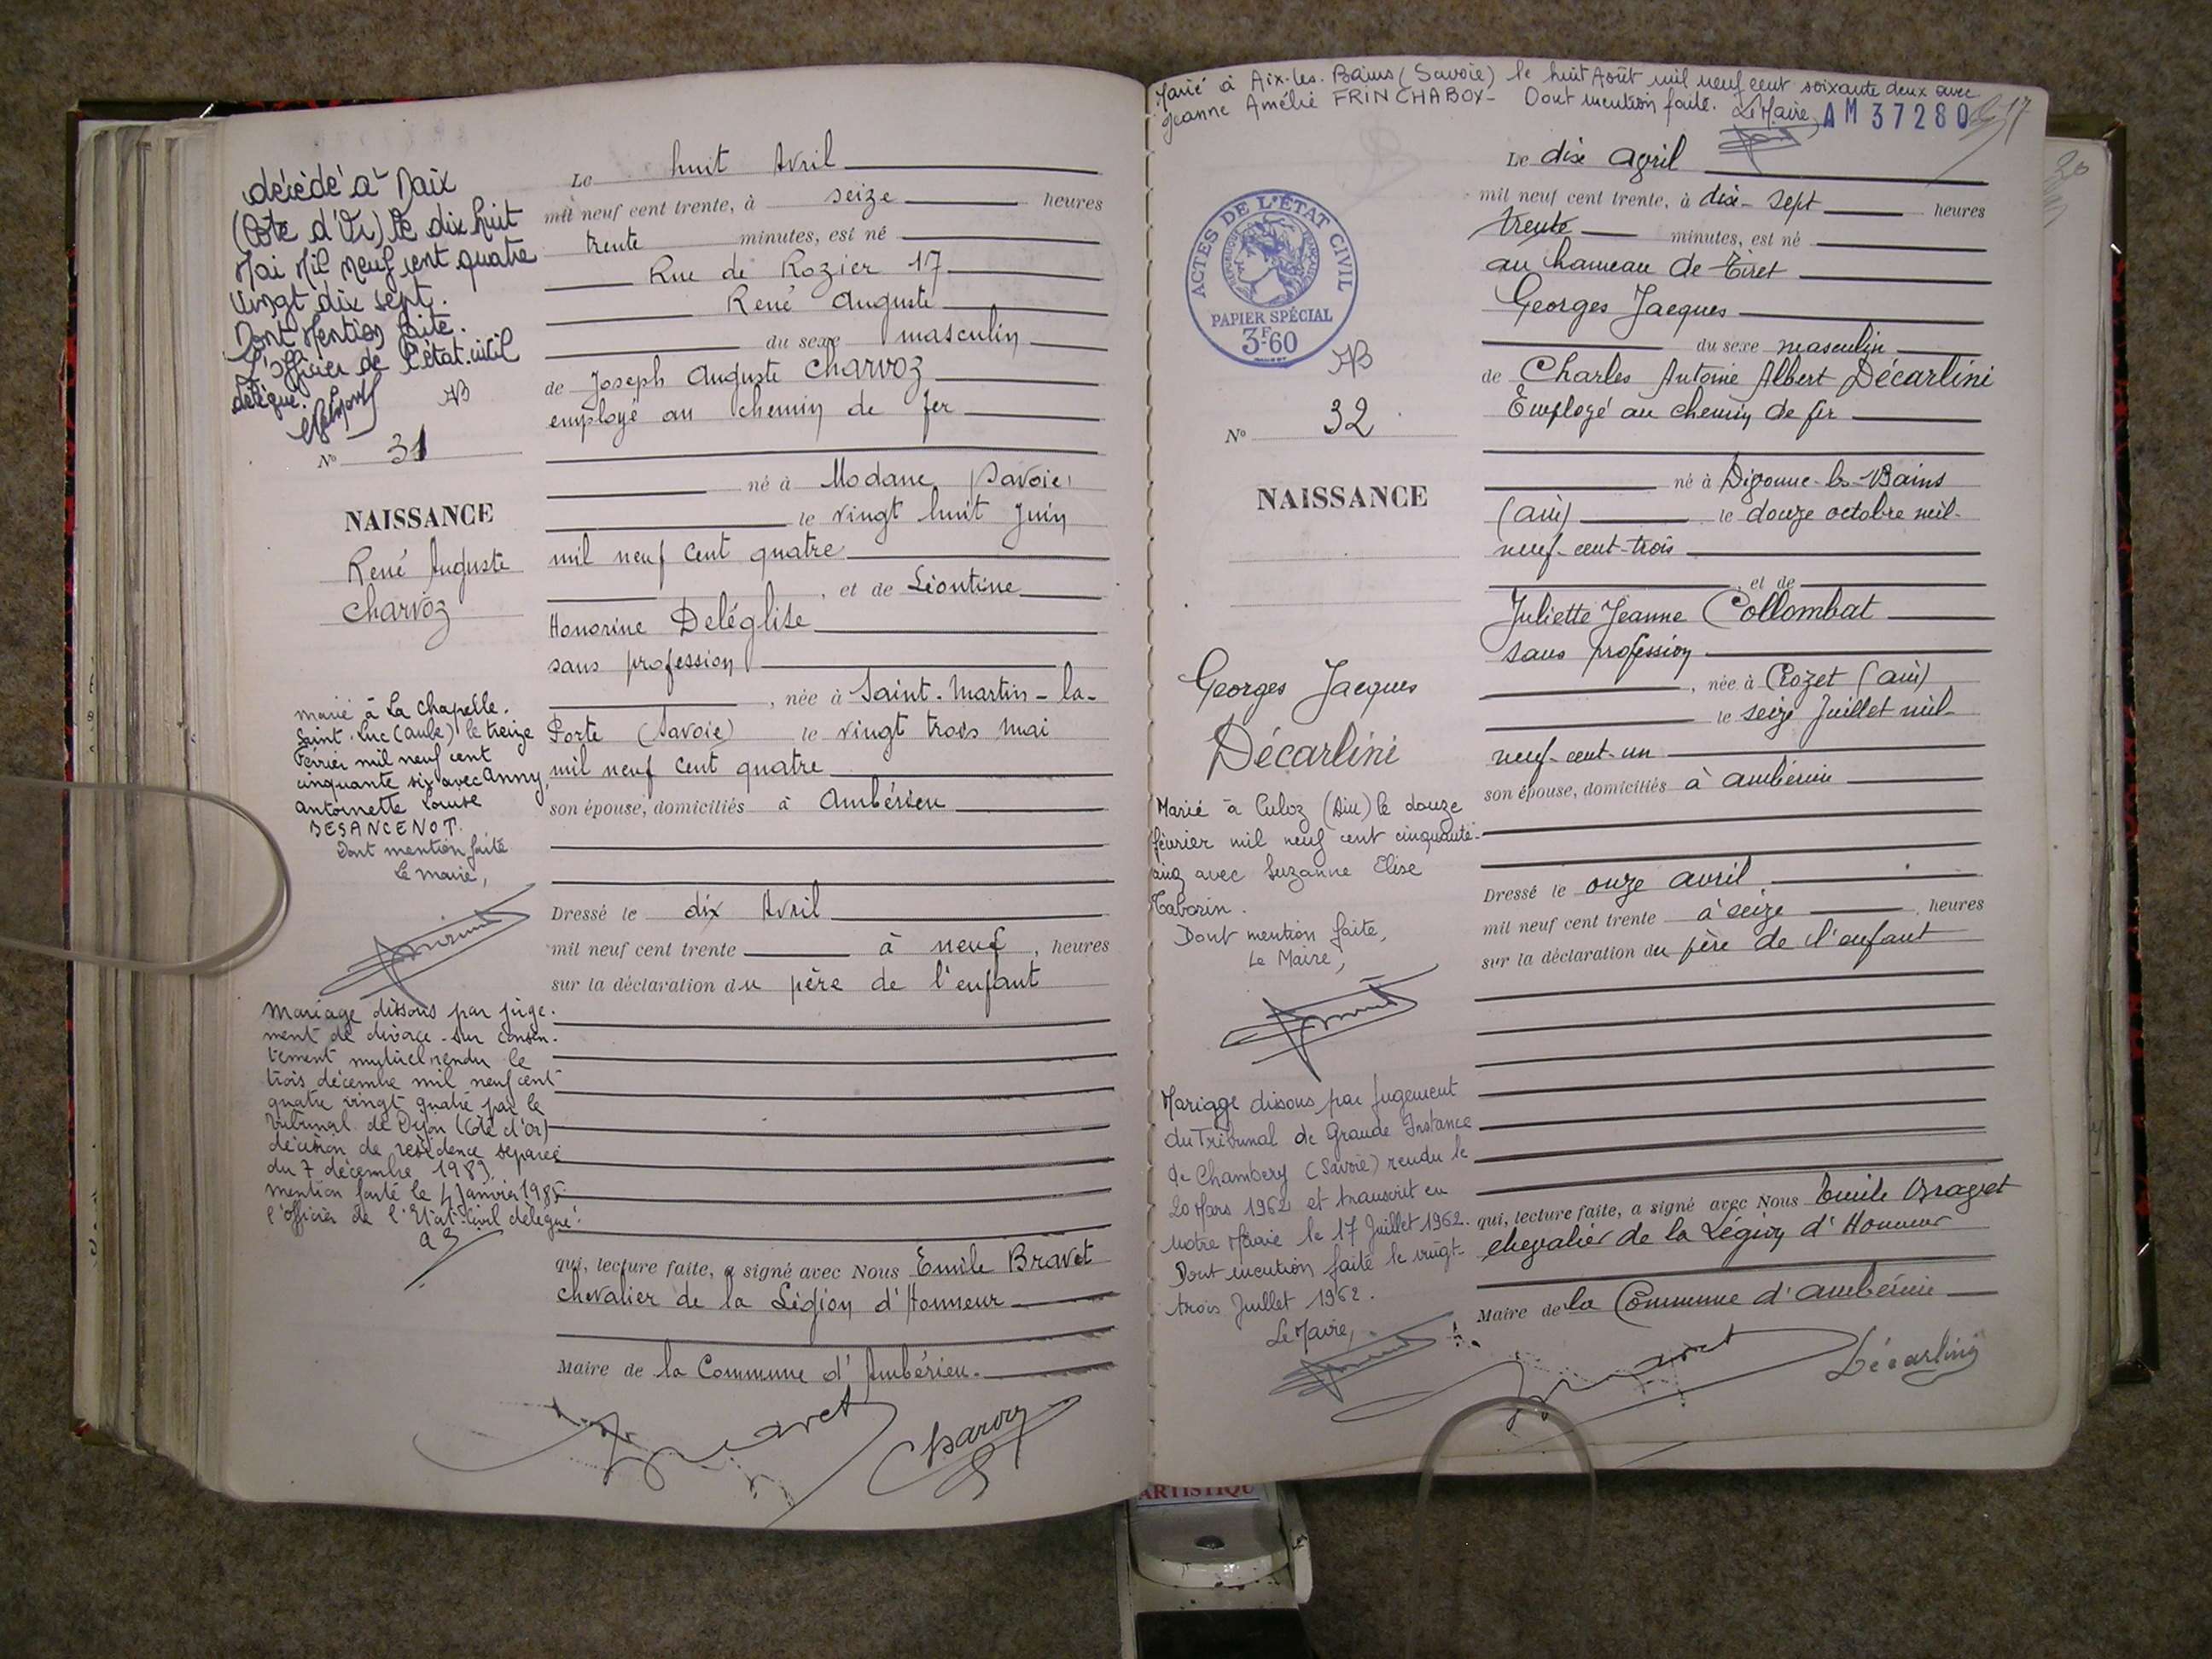 décédé à Daix
(Côte d'Or) le dix huit
Mai Mil Neuf cent quatre
vingt dix sept.
Dont Mention faite.
L'officier de l'état-civil
délégué.
AB
N° 31
NAISSANCE
René Auguste
Charvoz
marié à La Chapelle.
Saint-Luc (Aube) le treize
Février mil neuf cent
cinquante six avec Anny,
Antoinette Louise
BESANCENOT.
Dont mention faite
Le maire,
Mariage dissous par juge-
ment de divorce sur consen-
tement mutuel rendu le
trois décembre mil neuf cent
quatre vingt quatre par le
Tribunal de Dijon (Côte d'Or)
décision de résidence séparée
du 7 décembre 1983.
mention faite le 4 Janvier 1985
l'officier de l'Etat-Civil délégué.
Le huit Avril
mil neuf cent trente, à seize heures
trente minutes, est né
Rue de Rozier 17
René Auguste
du sexe masculin
de Joseph Auguste Charvoz
employé au chemin de fer
né à Modane (Savoie)
le vingt huit Juin
mil neuf cent quatre
, et de Léontine
Honorine Deléglise
sans profession
, née à Saint-Martin-la-
Porte (Savoie) le vingt trois mai
mil neuf cent quatre
son épouse, domiciliés à Ambérieu
Dressé le dix Avril
mil neuf cent trente à neuf, heures
sur la déclaration du père de l'enfant
qui, lecture faite, a signé avec Nous Emile Bravet
chevalier de la Légion d'Honneur
Maire de la Commune d'Ambérieu.
Bravet
Charvoz
Marié à Aix-les-Bains (Savoie) le huit Août mil neuf cent soixante deux avec
Jeanne Amélie FRINCHABOY- Dont mention faite. Le Maire, AM 37280
17
ACTES DE L'ÉTAT CIVIL
RÉPUBLIQUE FRANÇAISE
PAPIER SPÉCIAL
3F60
AB
N° 32
NAISSANCE
Georges Jacques
Décarlini
Marié à Culoz (Ain) le douze
février mil neuf cent cinquante-
cinq avec Suzanne Elise
Taborin.
Dont mention faite,
Le Maire,
Mariage dissous par Jugement
du Tribunal de Grande Instance
de Chambery (Savoie) rendu le
20 Mars 1962 et transcrit en
notre Mairie le 17 Juillet 1962.
Dont mention faite le vingt-
trois Juillet 1962.
Le Maire,
Le dix avril
mil neuf cent trente, à dix-sept heures
trente minutes, est né
au hameau de Tiret
Georges Jacques
du sexe masculin
de Charles Antoine Albert Décarlini
Employé au chemin de fer
né à Divonne-les-Bains
(ain) le douze octobre mil-
neuf-cent-trois
, et de
Juliette Jeanne Collombat
sans profession
, née à Crozet (ain)
le seize Juillet mil-
neuf-cent-un
son épouse, domiciliés à ambérieu
Dressé le onze avril
mil neuf cent trente à seize heures
sur la déclaration du père de l'enfant
qui, lecture faite, a signé avec Nous Emile Bravet
chevalier de la Légion d'Honneur
Maire de la Commune d'ambérieu
Bravet
Décarlini
ARTISTIQU